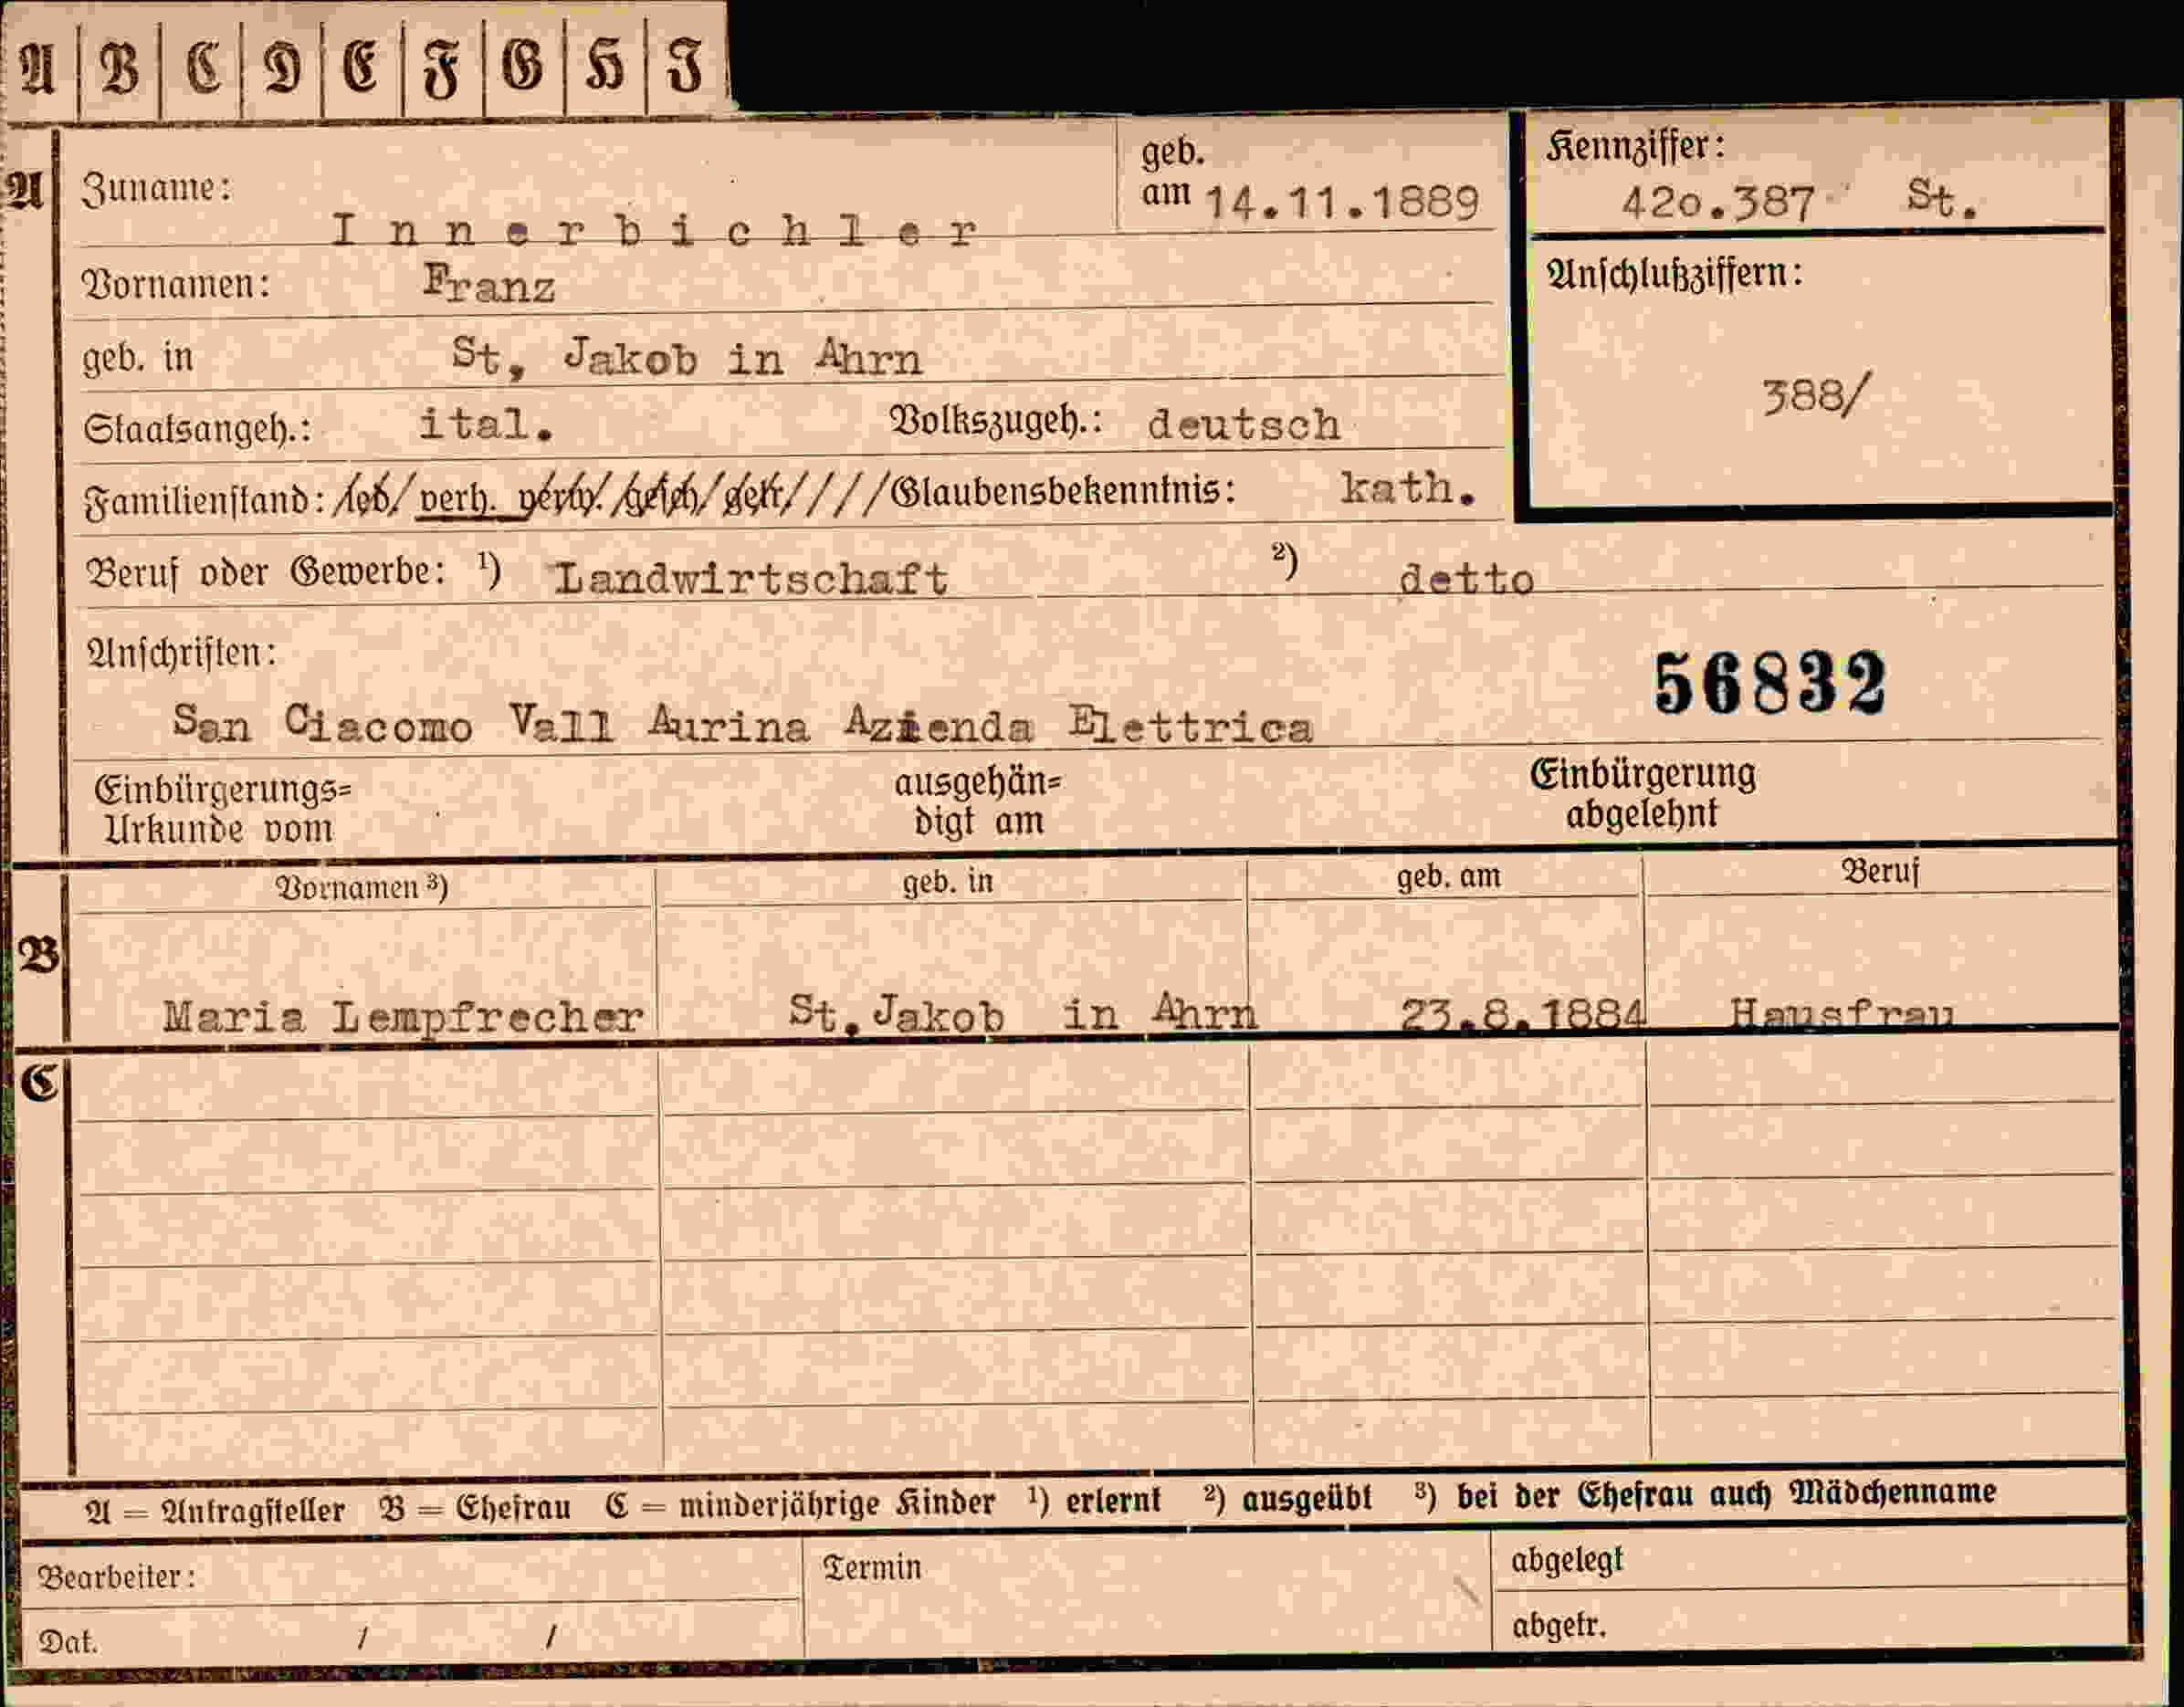 A B C D E F G H I
A Zuname: Innerbichler geb. am 14.11.1889
Kennziffer: 420.387 St.
Vornamen: Franz
Anschlußziffern: 388/
geb. in St, Jakob in Ahrn
Staatsangeh.: ital. Volkszugeh.: deutsch
Familienstand: led/ verh. verw./ gesch/ getr///// Glaubensbekenntnis: kath.
Beruf oder Gewerbe: ¹) Landwirtschaft ²) detto
Anschriften: 56832
San Ciacomo Vall Aurina Azienda Elettrica
Einbürgerungs= ausgehän= Einbürgerung
Urkunde vom digt am abgelehnt
Vornamen ³) geb. in geb. am Beruf
B
Maria Lempfrecher St.Jakob in Ahrn 23.8.1884 Hausfrau
C
A = Antragsteller B = Ehefrau C = minderjährige Kinder ¹) erlernt ²) ausgeübt ³) bei der Ehefrau auch Mädchenname
Bearbeiter: Termin abgelegt
Dat. / / abgetr.